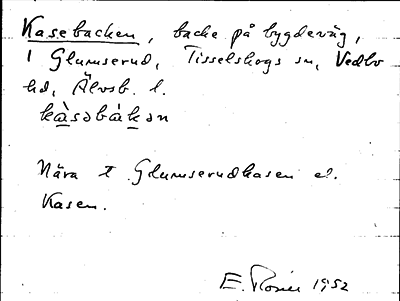 Kasebacken, backe på bygdeväg,
i Glumserud, Tisselskogs sn, Vedbo
hd, Älvsb. l.
kàsəbákən
Nära t Glumserudkasen el.
Kasen.
E. Rosén 1952